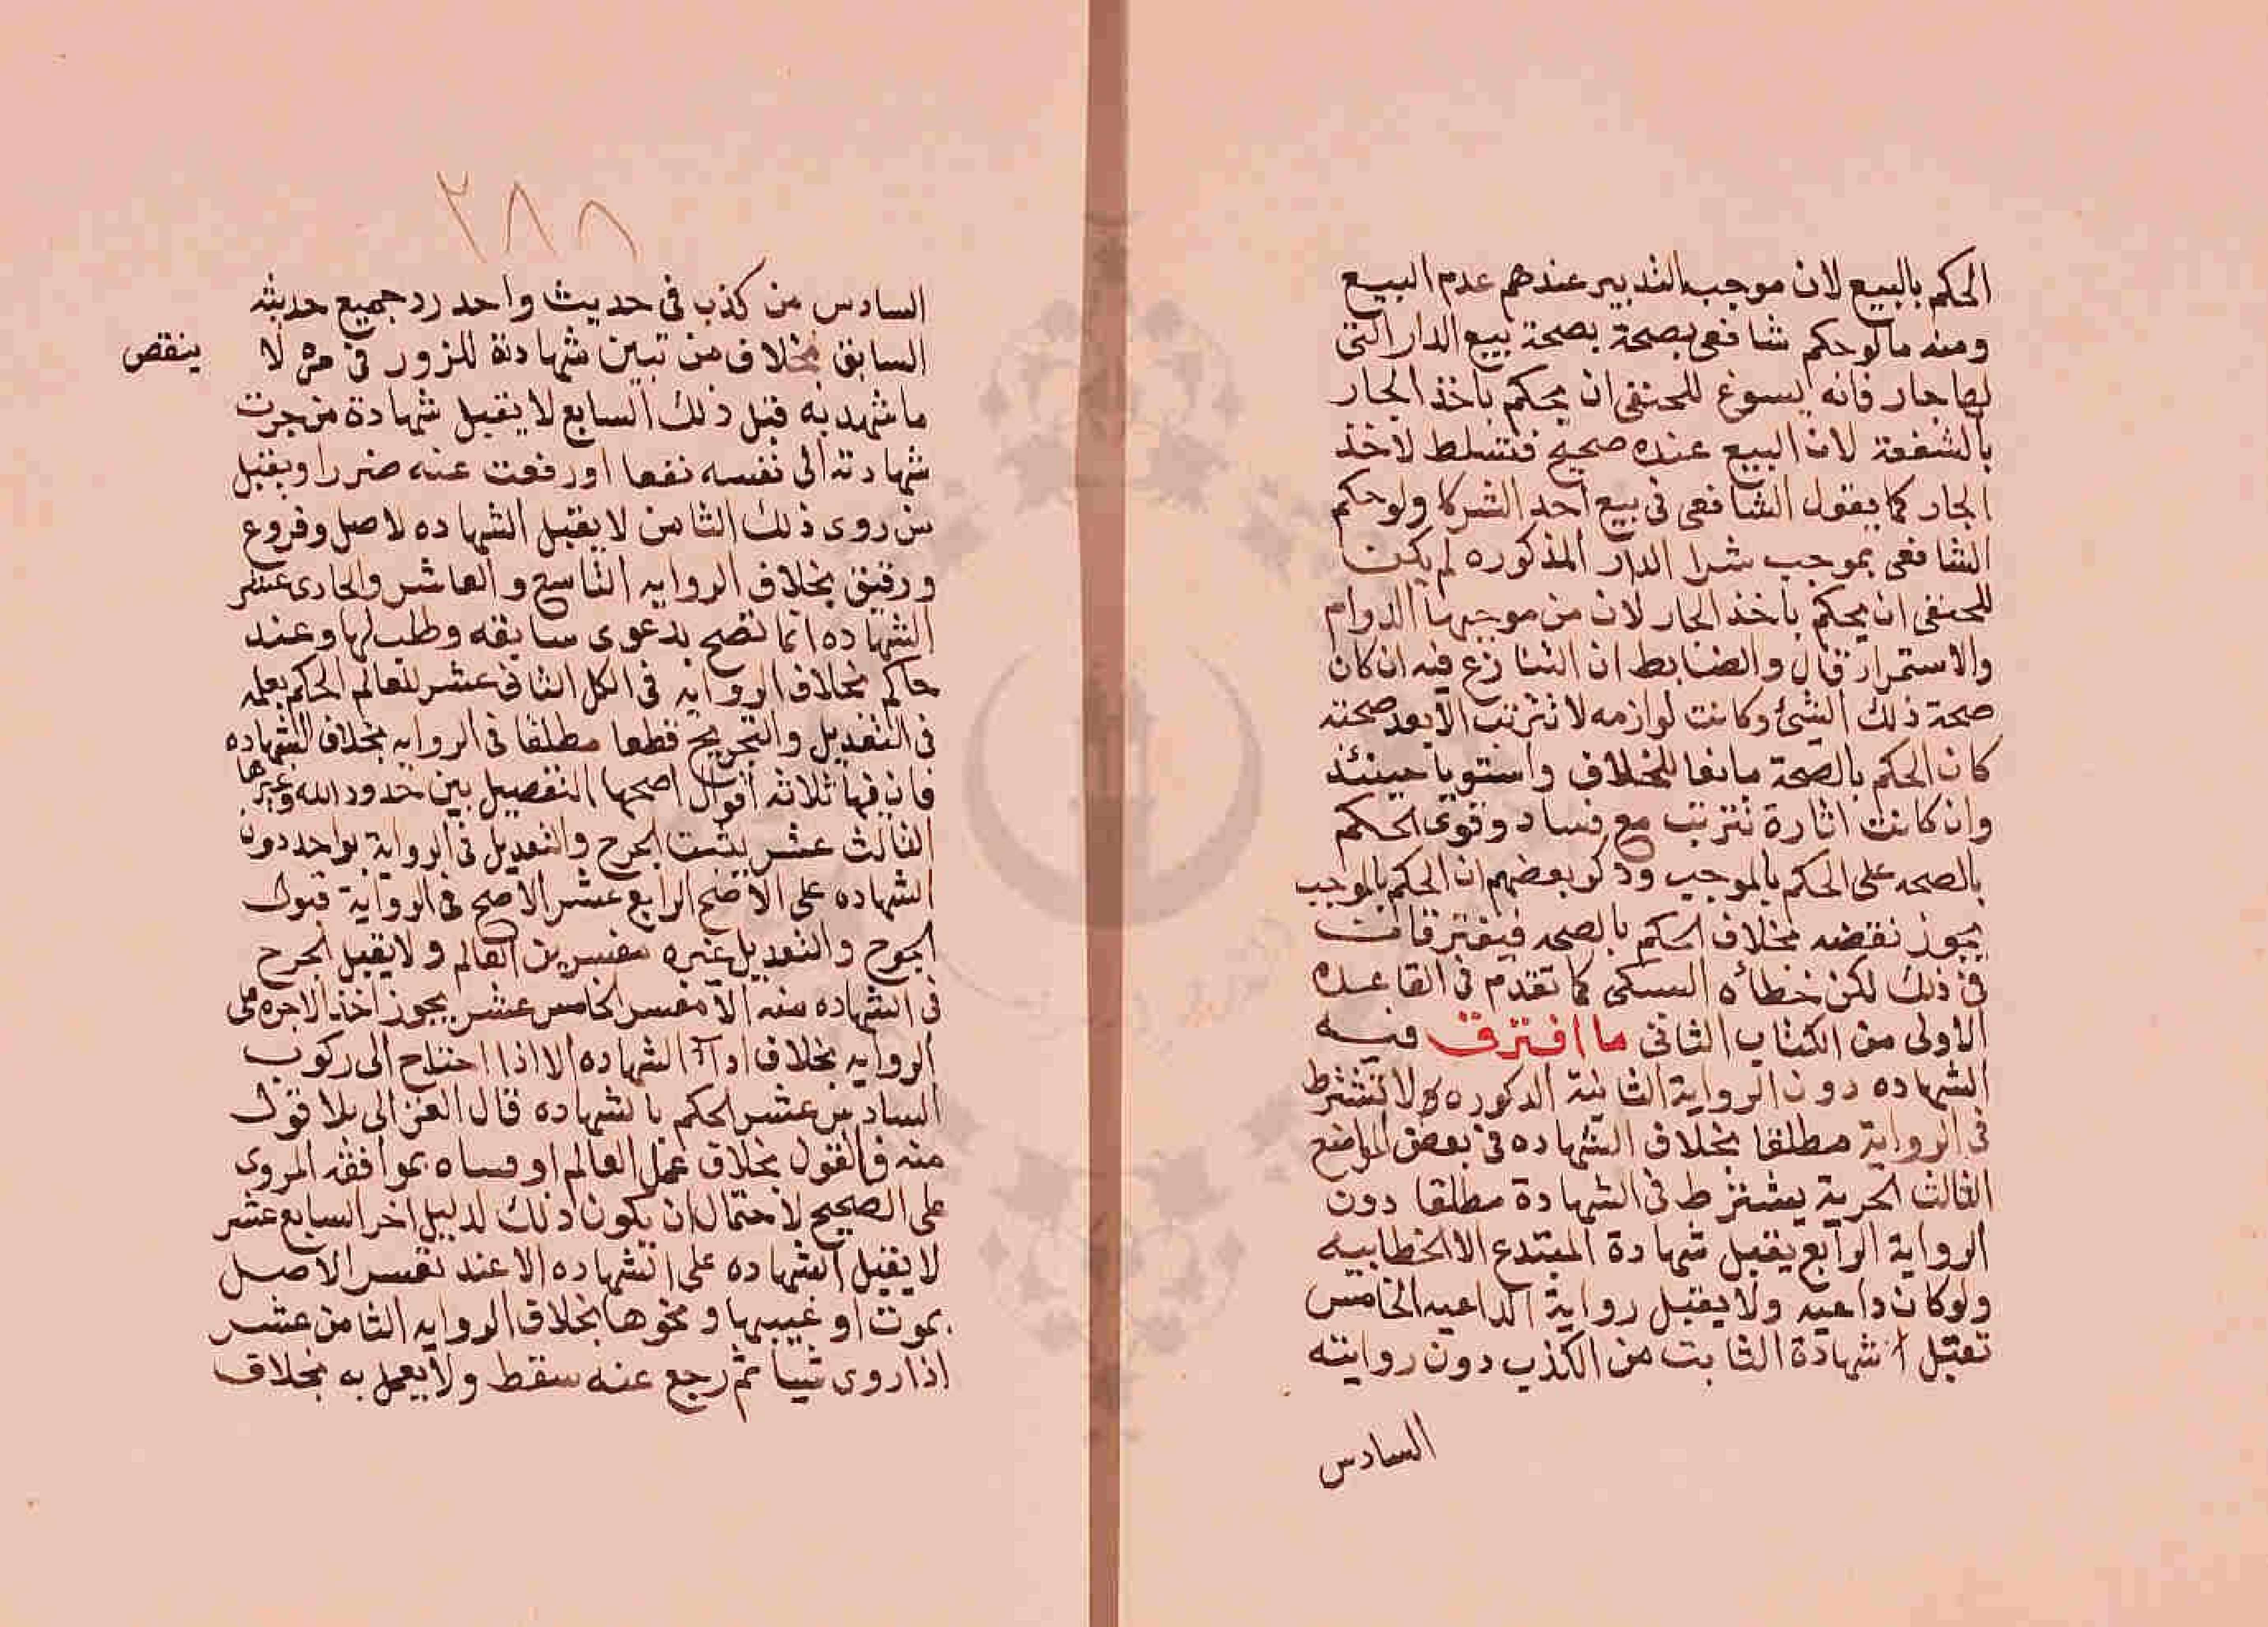 الحكم بالبيع لان موجب التدبير عندهم عدم البيع
ومنه ما لو حكم شافعى بصحة بصحة بيع الدار التى
لها جار فانه يسوغ للحنفى ان يحكم باخذ الجار
بالشفعة لان البيع عنده صحيح فتسلط لاخذ
الجار كما يقول الشافعى فى بيع احد الشركا ولو حكم
الشافعى بموجب شرا الدار المذكوره لم يكن
للحنفى ان يحكم باخذ الجار لان من موجبها الدوام
والاستمرار قال والضابط ان التنازع فيه ان كان
صحة ذلك الشئ وكانت لوازمه لا تترتب الا بعد صحته
كان الحكم بالصحة مانعا للخلاف واستويا حينئذ
وان كانت اثارة تترتب مع فساد وقوى الحكم
بالصحه على الحكم بالموجب وذكر بعضهم ان الحكم بالموجب
يجوز نقضه بخلاف الحكم بالصحه فيفترقان
فى ذلك لكن خطأه السبكى كما تقدم فى القاعده
الاولى من الكتاب الثانى ما افترق فيه
الشهاده دون الرواية الثانية الذكوره لا تشترط
فى الرواية مطلقا بخلاف الشهاده فى بعض المواضع
الثالث الحرية يشترط فى الشهادة مطلقا دون
الرواية الرابع يقبل شهادة المبتدع الا الخطابيه
ولو كان داعيه ولا يقبل رواية الداعيه الخامس
تقبل شهادة الثابت من الكذب دون روايته
السادس
٢٨٨
السادس من كذب فى حديث واحد رد جميع حديثه
السابق بخلاف من تبين شهادتة للزور فى مرة لا ينقص
ما شهد به قبل ذلك السابع لا يقبل شهادة من جرت
شهادته الى نفسه نفعا او رفعت عنه ضررا ويقبل
من روى ذلك الثامن لا يقبل الشهاده لاصل وفروع
ورقيق بخلاف الروايه التاسع والعاشر والحادى عشر
الشهاده انما تصح بدعوى سابقه وطلب لها وعند
حاكم بخلاف الروايه فى الكل الثانى عشر للعالم الحكم بعلمه
فى التعديل والتجريح قطعا مطلقا فى الروايه بخلاف الشهاده
فان فيها ثلاثه اقوال اصحها التفصيل بين حدود الله وغيرها
الثالث عشر يثبت الجرح والتعديل فى الرواية بواحد دون
الشهاده على الاصح الرابع عشر الاصح فى الرواية قبول
الجرح والتعديل غيره مفسر من العالم ولا يقبل الجرح
فى الشهاده منه الا مفسر الخامس عشر يجوز اخذ الاجره على
الروايه بخلاف اداآ الشهاده الا اذا احتاج الى ركوب
السادس عشر الحكم بالشهاده قال الغزالى بلا قول
منه فالقول بخلاف عمل العالم او فساه بموافقه المروى
على الصحيح لاحتمال ان يكون ذلك لدليل اخر السابع عشر
لا يقبل الشهاده على الشهاده الا عند تفسر الاصل
بموت او غيبها ونحوها بخلاف الروايه الثامن عشر
اذا روى شيا ثم رجع عنه سقط ولا يعمل به بخلاف